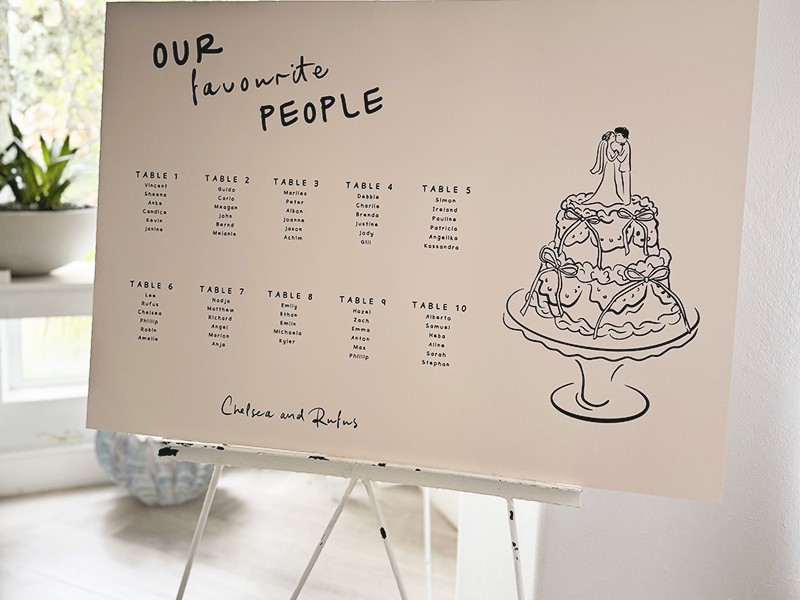 OUR
favourite
PEOPLE
TABLE 1
Vincent
Sheena
Anke
Candice
Kevin
Janine
TABLE 2
Guido
Carlo
Meagan
John
Bernd
Melanie
TABLE 3
Marlies
Peter
Alban
Joanne
Jason
Achim
TABLE 4
Debbie
Charlie
Brenda
Justine
Jody
Gill
TABLE 5
Simon
Ireland
Pauline
Patricia
Angelika
Kassandra
TABLE 6
Lee
Rufus
Chelsea
Phillip
Robin
Amelie
TABLE 7
Nadja
Matthew
Richard
Angel
Marion
Anja
TABLE 8
Emily
Ethan
Emlin
Michaela
Kyler
TABLE 9
Hazel
Zach
Emma
Anton
Max
Phillip
TABLE 10
Alberto
Samuel
Heba
Aline
Sarah
Stephan
Chelsea and Rufus